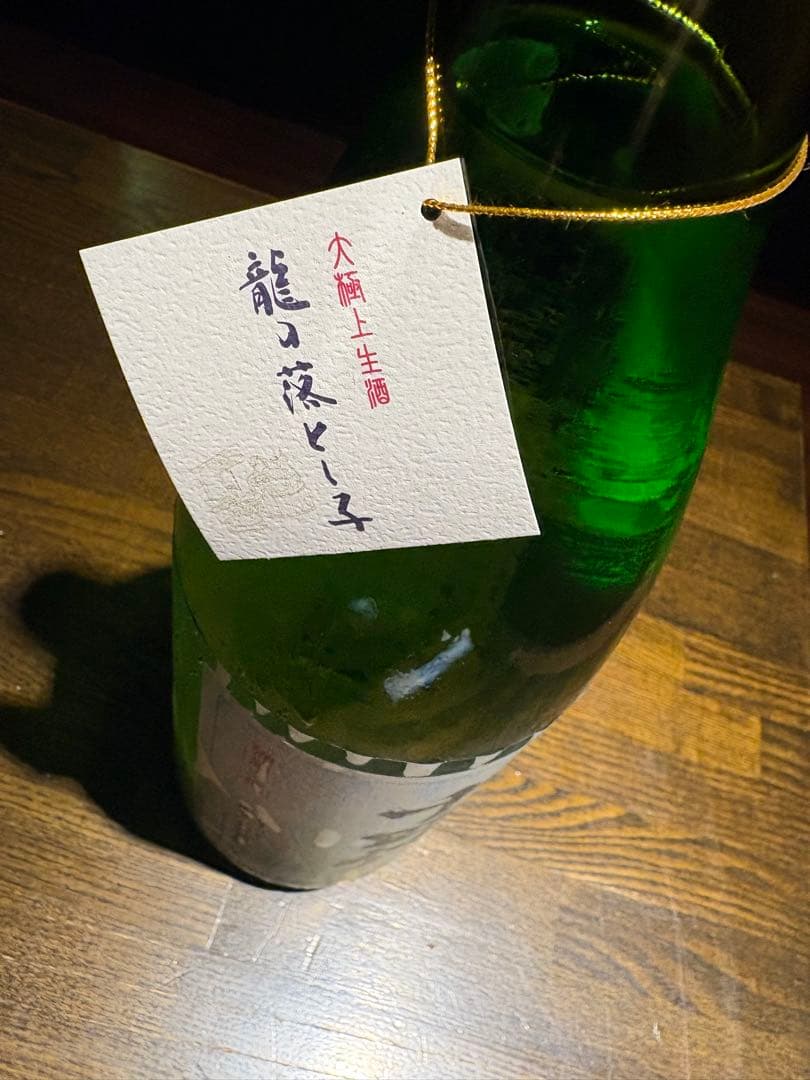 大極上生酒
龍の落とし子